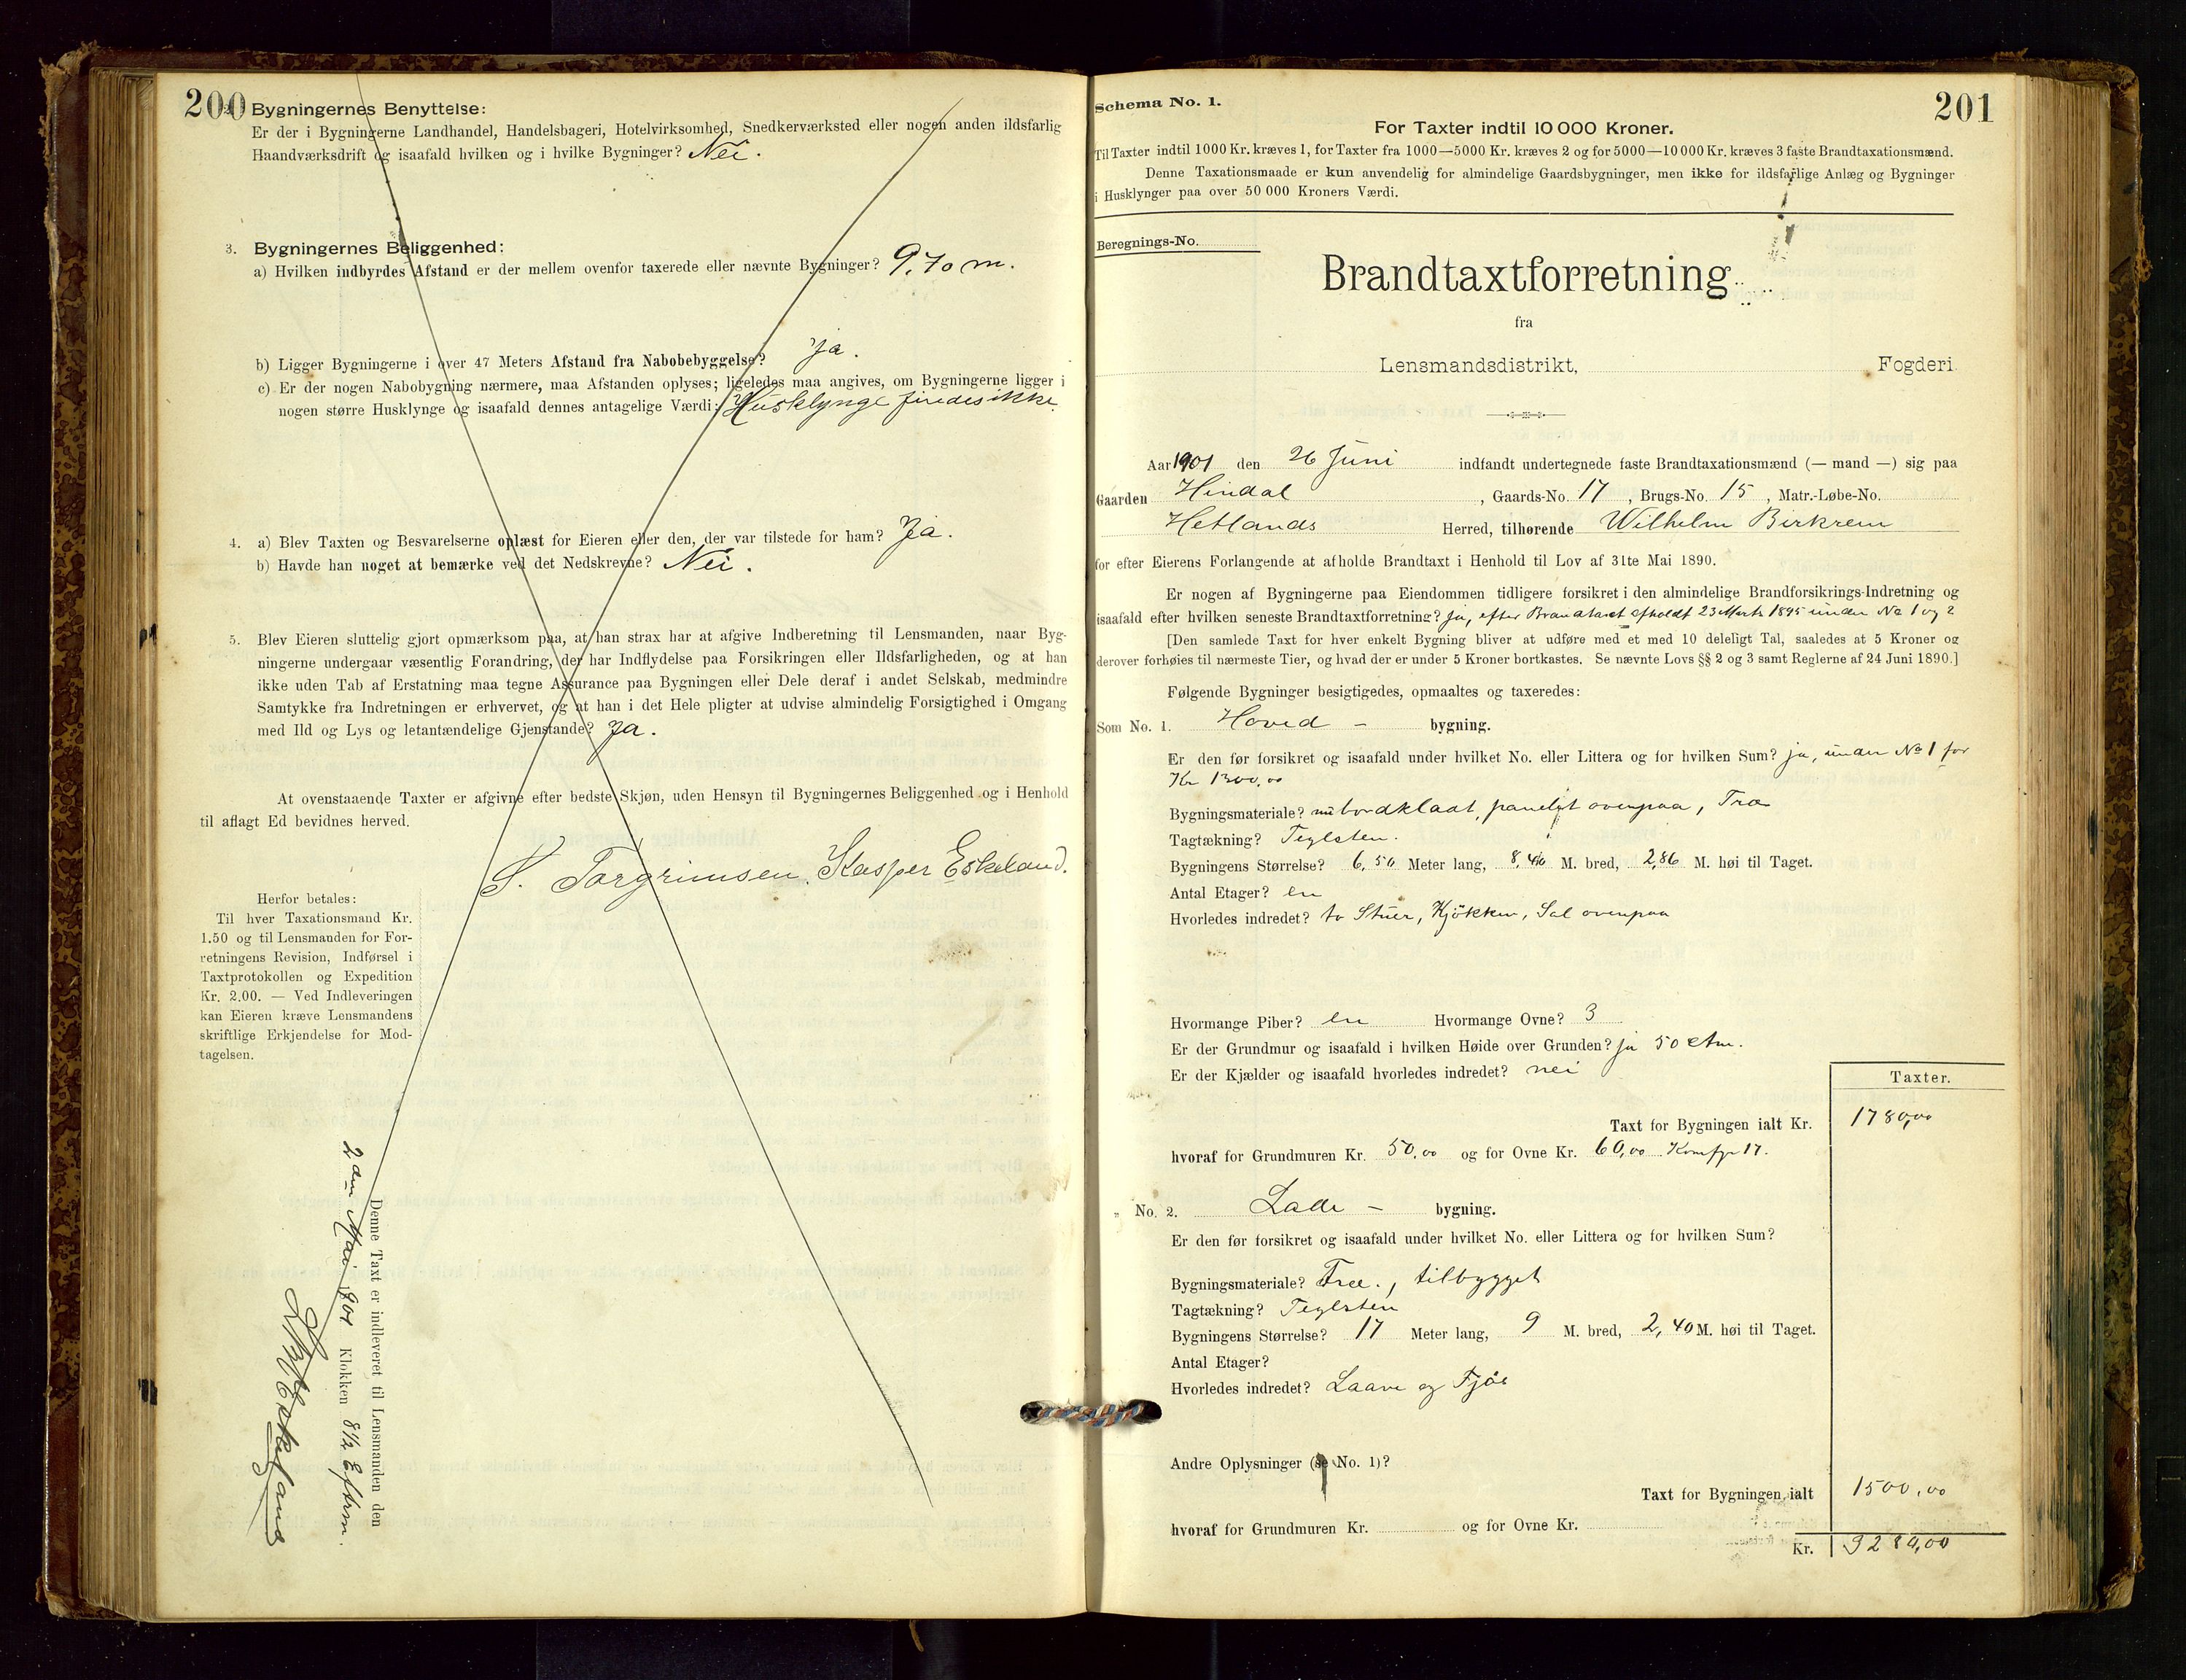 200
2. Bygningernes Benyttelse:
Er der i Bygningerne Landhandel, Handelsbageri, Hotelvirksomhed, Snedkerværksted eller nogen anden ildsfarlig
Haandværksdrift og isaafald hvilken og i hvilke Bygninger? Nei.
3. Bygningernes Beliggenhed:
a) Hvilken indbyrdes Afstand er der mellem ovenfor taxerede eller nævnte Bygninger? 9,70 m.
b) Ligger Bygningerne i over 47 Meters Afstand fra Nabobebyggelse? Ja.
c) Er der nogen Nabobygning nærmere, maa Afstanden oplyses; ligeledes maa angives, om Bygningerne ligger i
nogen større Husklynge og isaafald dennes antagelige Værdi: Husklynge findes ikke.
4. a) Blev Taxten og Besvarelserne oplæst for Eieren eller den, der var tilstede for ham? Ja.
b) Havde han noget at bemærke ved det Nedskrevne? Nei.
5. Blev Eieren sluttelig gjort opmærksom paa, at han strax har at afgive Indberetning til Lensmanden, naar Byg-
ningerne undergaar væsentlig Forandring, der har Indflydelse paa Forsikringen eller Ildsfarligheden, og at han
ikke uden Tab af Erstatning maa tegne Assurance paa Bygningen eller Dele deraf i andet Selskab, medmindre
Samtykke fra Indretningen er erhvervet, og at han i det Hele pligter at udvise almindelig Forsigtighed i Omgang
med Ild og Lys og letantændelige Gjenstande? Ja.
At ovenstaaende Taxter er afgivne efter bedste Skjøn, uden Hensyn til Bygningernes Beliggenhed og i Henhold
til aflagt Ed bevidnes herved.
S. Torgrimsen. Kasper Eskeland.
Herfor betales:
Til hver Taxationsmand Kr.
1.50 og til Lensmanden for For-
retningens Revision, Indførsel i
Taxtprotokollen og Expedition
Kr. 2.00. — Ved Indleveringen
kan Eieren kræve Lensmandens
skriftlige Erkjendelse for Mod-
tagelsen.
Denne Taxt er indleveret til Lensmanden den
2den Mai 1901 Klokken 8 1/2 Eftrm.
Eskeland
201
Schema No. 1.
For Taxter indtil 10 000 Kroner.
Til Taxter indtil 1000 Kr. kræves 1, for Taxter fra 1000—5000 Kr. kræves 2 og for 5000—10 000 Kr. kræves 3 faste Brandtaxationsmænd.
Denne Taxationsmaade er kun anvendelig for almindelige Gaardsbygninger, men ikke for ildsfarlige Anlæg og Bygninger
i Husklynger paa over 50 000 Kroners Værdi.
Beregnings-No.
Brandtaxtforretning
fra
Lensmandsdistrikt, Fogderi.
Aar 1901 den 26 Juni indfandt undertegnede faste Brandtaxationsmænd (— mand —) sig paa
Gaarden Hindal, Gaards-No. 17, Brugs-No. 15, Matr.-Løbe-No.
Hetlands Herred, tilhørende Wilhelm Birkrem
for efter Eierens Forlangende at afholde Brandtaxt i Henhold til Lov af 31te Mai 1890.
Er nogen af Bygningerne paa Eiendommen tidligere forsikret i den almindelige Brandforsikrings-Indretning og
isaafald efter hvilken seneste Brandtaxtforretning? Ja, efter Brandtaxt afholdt 23 Marts 1895 under No 1 og 2
[Den samlede Taxt for hver enkelt Bygning bliver at udføre med et med 10 deleligt Tal, saaledes at 5 Kroner og
derover forhøies til nærmeste Tier, og hvad der er under 5 Kroner bortkastes. Se nævnte Lovs §§ 2 og 3 samt Reglerne af 24 Juni 1890.]
Følgende Bygninger besigtigedes, opmaaltes og taxeredes:
Som No. 1. Hoved - bygning.
Er den før forsikret og isaafald under hvilket No. eller Littera og for hvilken Sum? ja, under No 1 for
Kr 1300,00
Bygningsmateriale? nu bordklædt, panelet ovenpaa, Træ
Tagtækning? Teglsten.
Bygningens Størrelse? 6,50 Meter lang, 8,40 M. bred, 2,86 M. høi til Taget.
Antal Etager? en
Hvorledes indredet? to Stuer, Kjøkken, Sal ovenpaa
Hvormange Piber? en Hvormange Ovne? 3
Er der Grundmur og isaafald i hvilken Høide over Grunden? ja 50 ctm.
Er der Kjælder og isaafald hvorledes indredet? nei
Taxter.
Taxt for Bygningen ialt Kr. 1780,00
hvoraf for Grundmuren Kr. 50,00 og for Ovne Kr. 60,00 Komfyr 17.
" No. 2. Lade - bygning.
Er den før forsikret og isaafald under hvilket No. eller Littera og for hvilken Sum?
Bygningsmateriale? Træ., tilbygget
Tagtækning? Teglsten
Bygningens Størrelse? 17 Meter lang, 9 M. bred, 2,40 M. høi til Taget.
Antal Etager?
Hvorledes indredet? Laave og Fjøs
Andre Oplysninger (se No. 1)?
Taxt for Bygningen ialt 1500,00
hvoraf for Grundmuren Kr. og for Ovne Kr.
Kr. 3280,00